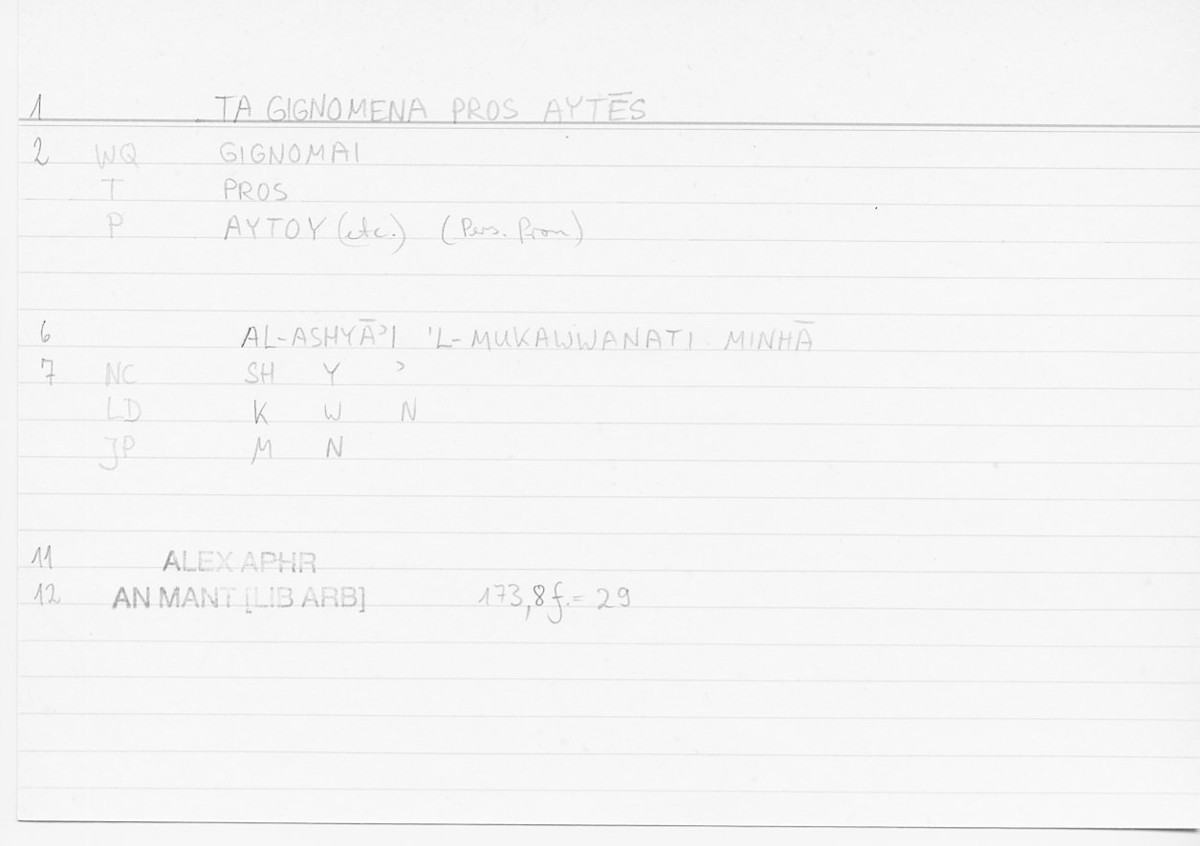 1 TA GIGNOMENA PROS AYTĒS
2 WQ GIGNOMAI
T PROS
P AYTOY (etc.) (Pers. Pron)
6 AL-ASHYĀʾI 'L-MUKAWWANATI MINHĀ
7 NC SH Y ʾ
LD K W N
JP M N
11 ALEX APHR
12 AN MANT [LIB ARB] 173,8 f. = 29